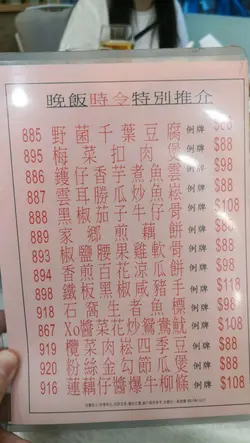 晚飯時令特別推介
885 野菌千葉豆腐 例牌 $88
895 梅菜扣肉煲 例牌 $88
886 鑊仔香芋煮魚雲 例牌 $98
887 雲耳勝瓜炒魚崧 例牌 $88
888 黑椒茄子牛仔骨 例牌 $108
889 家鄉煎藕餅 例牌 $88
893 椒鹽腰果雞軟骨 例牌 $98
894 香煎百花涼瓜餅 例牌 $98
898 鐵板黑椒咸豬手 例牌 $118
918 石窩生煮魚腩 例牌
867 Xo醬菜花炒鴛鴦魷 例牌 $108
919 欖菜肉崧四季豆 例牌 $88
920 粉絲金勾節瓜煲 例牌 $88
916 蓮藕仔醬爆牛柳條 例牌 $108